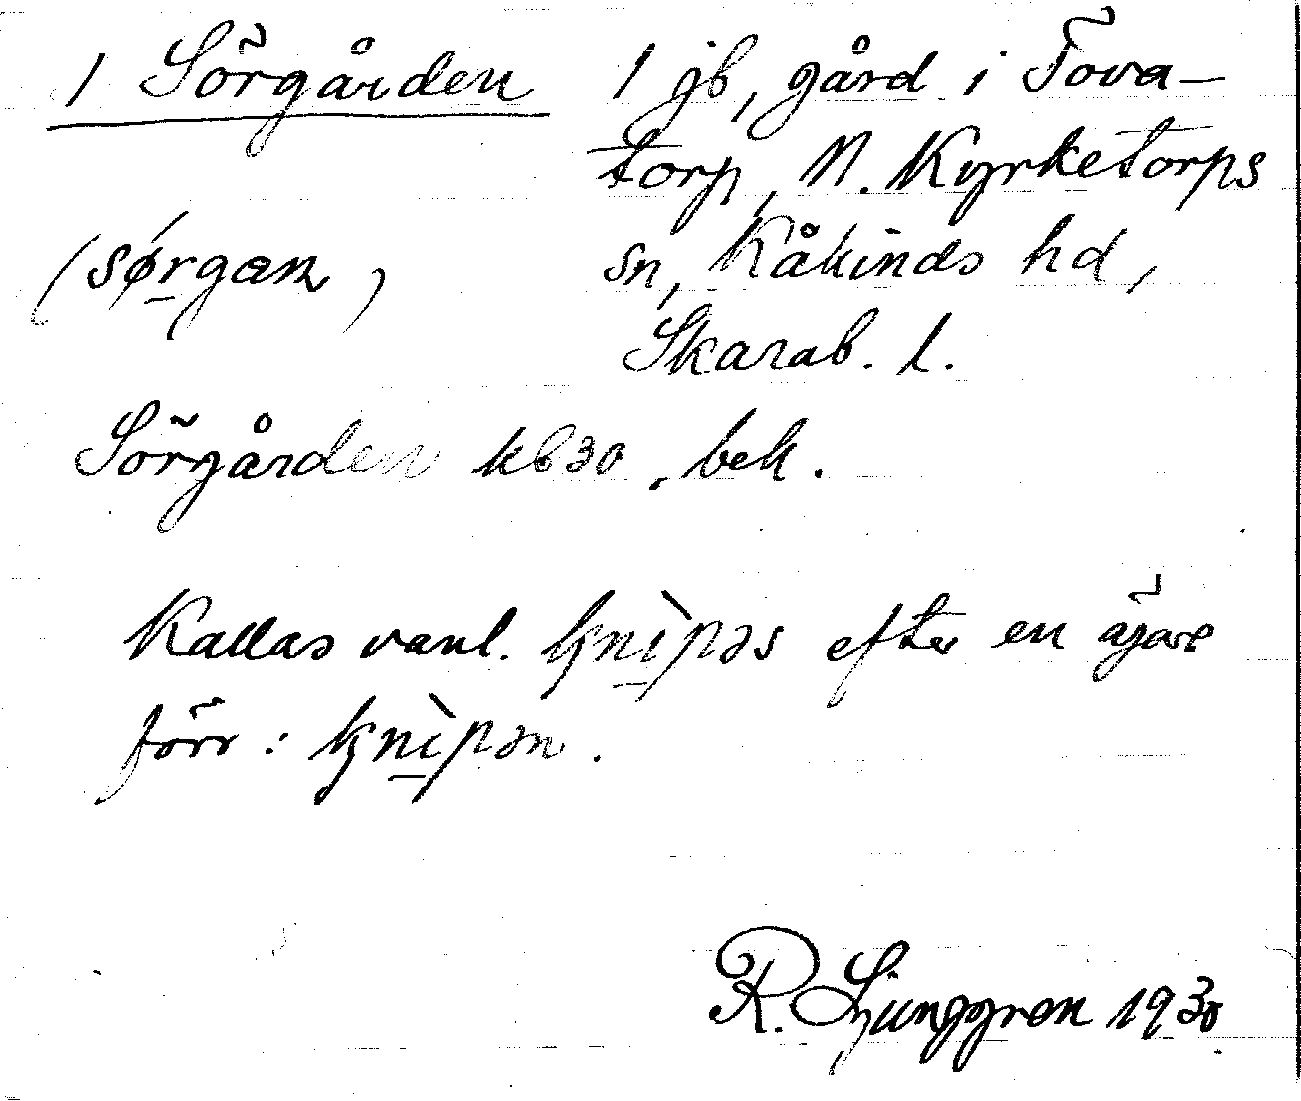 1 Sörgården 1 jb, gård i Tova-
torp, N. Kyrketorps
(sørgan) sn, Kåkinds hd,
Skarab. l.
Sörgården kb 30, bek.
Kallas vanl. knìpəs efter en ägare
förr : knìpən.
R. Ljunggren 1930